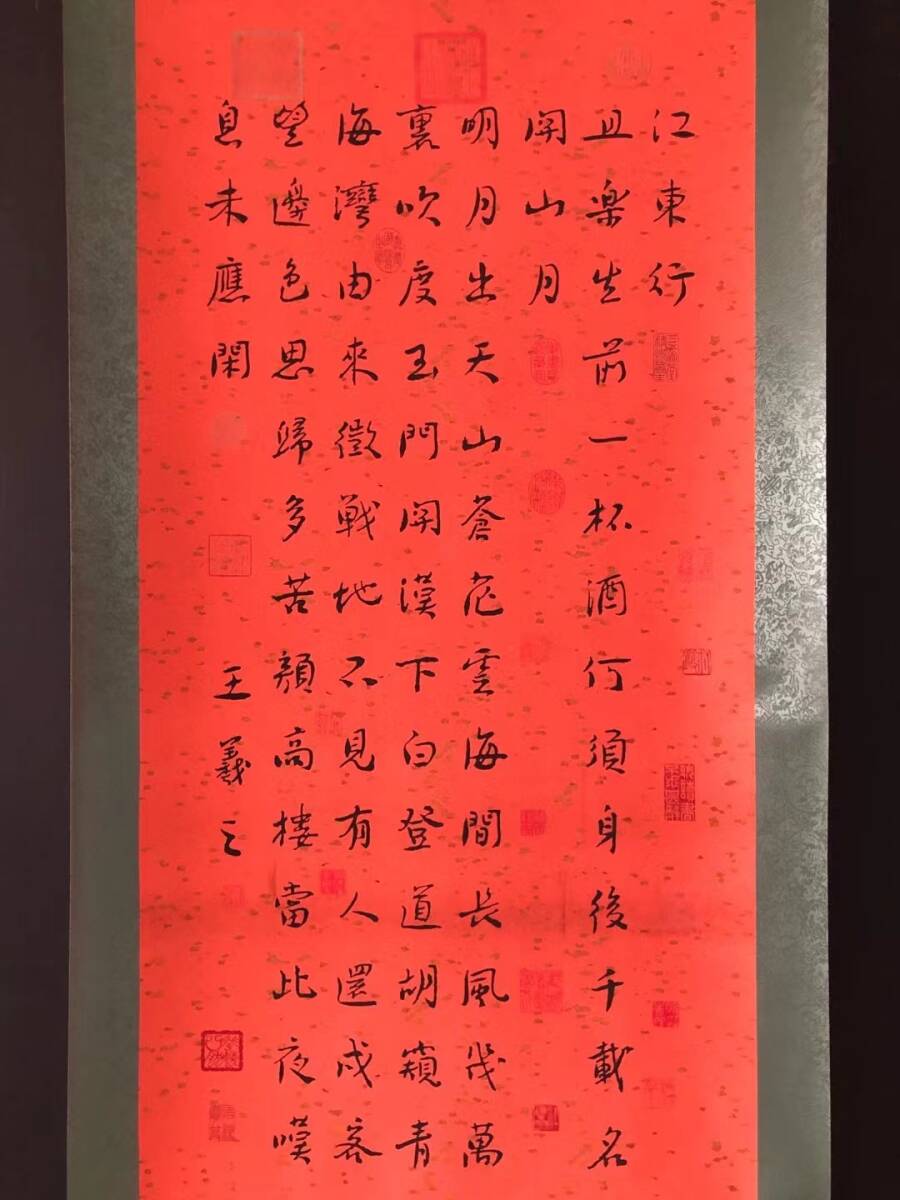 江東行
且樂生前一杯酒何須身後千載名
關山月
明月出天山蒼茫雲海間長風幾萬
裏吹度玉門關漢下白登道胡窺青
海灣由來徵戰地不見有人還戍客
望邊色思歸多苦顏高樓當此夜嘆
息未應閑
王羲之